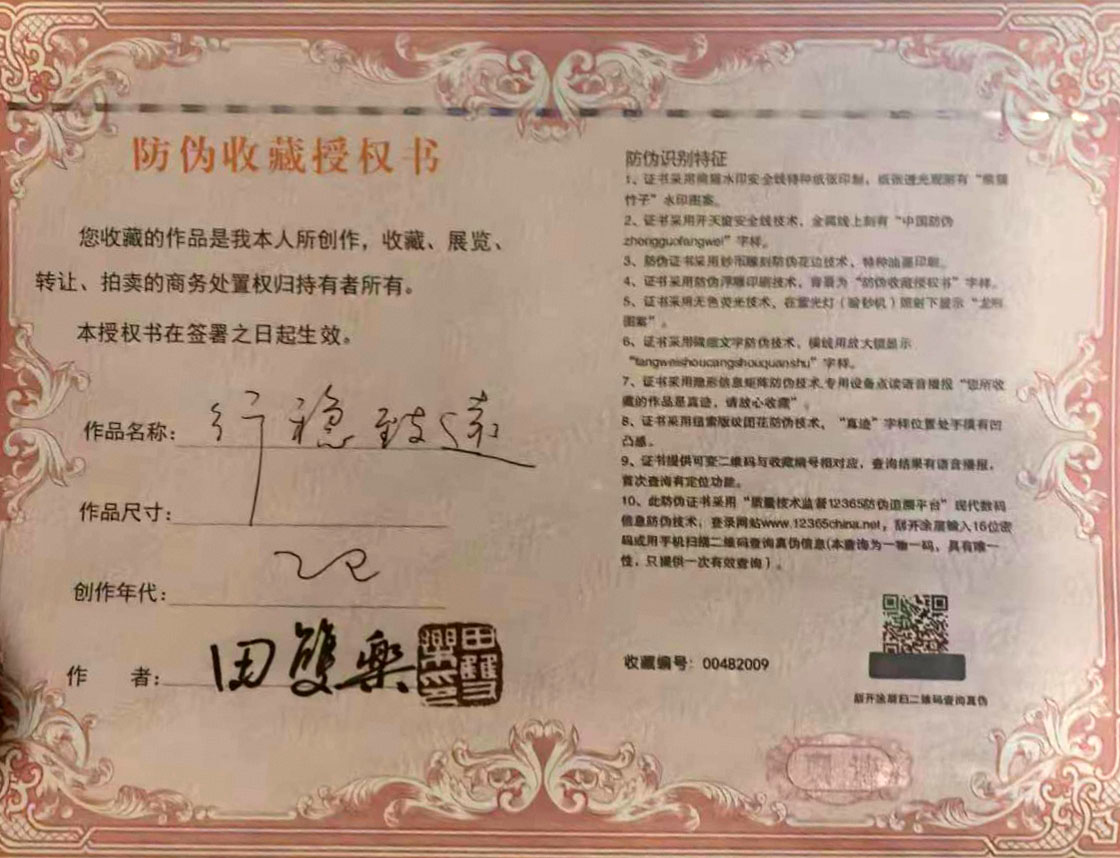 防伪收藏授权书
您收藏的作品是我本人所创作，收藏、展览、
转让、拍卖的商务处置权归持有者所有。
本授权书在签署之日起生效。
作品名称：行稳致远
作品尺寸：
创作年代：
作 者：田雙樂
防伪识别特征
1、证书采用熊猫水印安全线特种纸张印制，纸张透光观测有“熊猫
竹子”水印图案。
2、证书采用开天窗安全线技术，金属线上刻有“中国防伪
zhongguofangwei”字样。
3、防伪证书采用钞币雕刻防伪花边技术，特种油墨印刷。
4、证书采用防伪浮雕印刷技术，背景为“防伪收藏授权书”字样。
5、证书采用无色荧光技术，在萤光灯（验钞机）照射下显示“龙形
图案”。
6、证书采用微缩文字防伪技术，横线用放大镜显示
“fangweishoucangshouquanshu”字样。
7、证书采用隐形信息矩阵防伪技术,专用设备点读语音播报“您所收
藏的作品是真迹，请放心收藏”。
8、证书采用纽索版纹团花防伪技术，“真迹”字样位置处手摸有凹
凸感。
9、证书提供可变二维码与收藏编号相对应，查询结果有语音播报，
首次查询有定位功能。
10、此防伪证书采用“质量技术监督12365防伪追溯平台”现代数码
信息防伪技术，登录网站www.12365china.net，刮开涂层输入16位密
码或用手机扫描二维码查询真伪信息(本查询为一物一码，具有唯一
性，只提供一次有效查询）。
收藏编号：00482009
刮开涂层扫二维码查询真伪
真迹